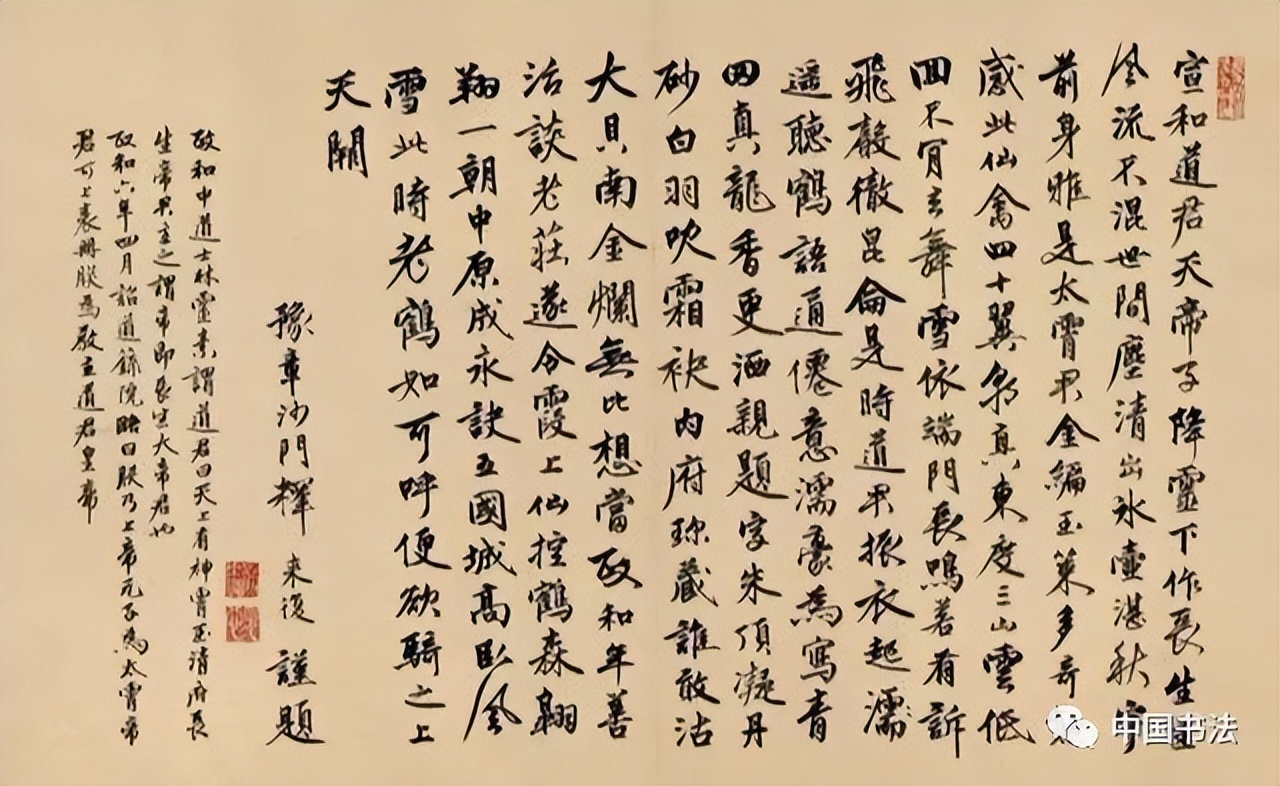 宣和道君天帝子降靈下作長生
風流不混世間塵清出冰壺湛秋
前身雅是太霄君金編玉策多奇
感此仙禽四十翼朝真東度三山雲低
回不肯玄舞雪依端門長鳴若有訴
飛聲徹昆侖是時道君振衣起濡
遥聽鶴語通僊意濡豪為寫青
田真龍香更洒親題字朱頂凝丹
砂白羽吹霜袂内府珎藏誰敢沽
大貝南金爛無比想當政和年善
活談老莊遂令霞上仙控鶴森翱
翔一朝中原成永訣五國城高臥風
雪此時老鶴如可呼便欲騎之上
天關
豫章沙門釋來復謹題
政和中道士林靈素謂道君曰天上有神霄玉清府長
生帝君主之謂帝即長生大帝君也
政和六年四月詔道錄院略曰朕乃上帝元子為太霄帝
君可上表冊朕為教主道君皇帝
中国书法